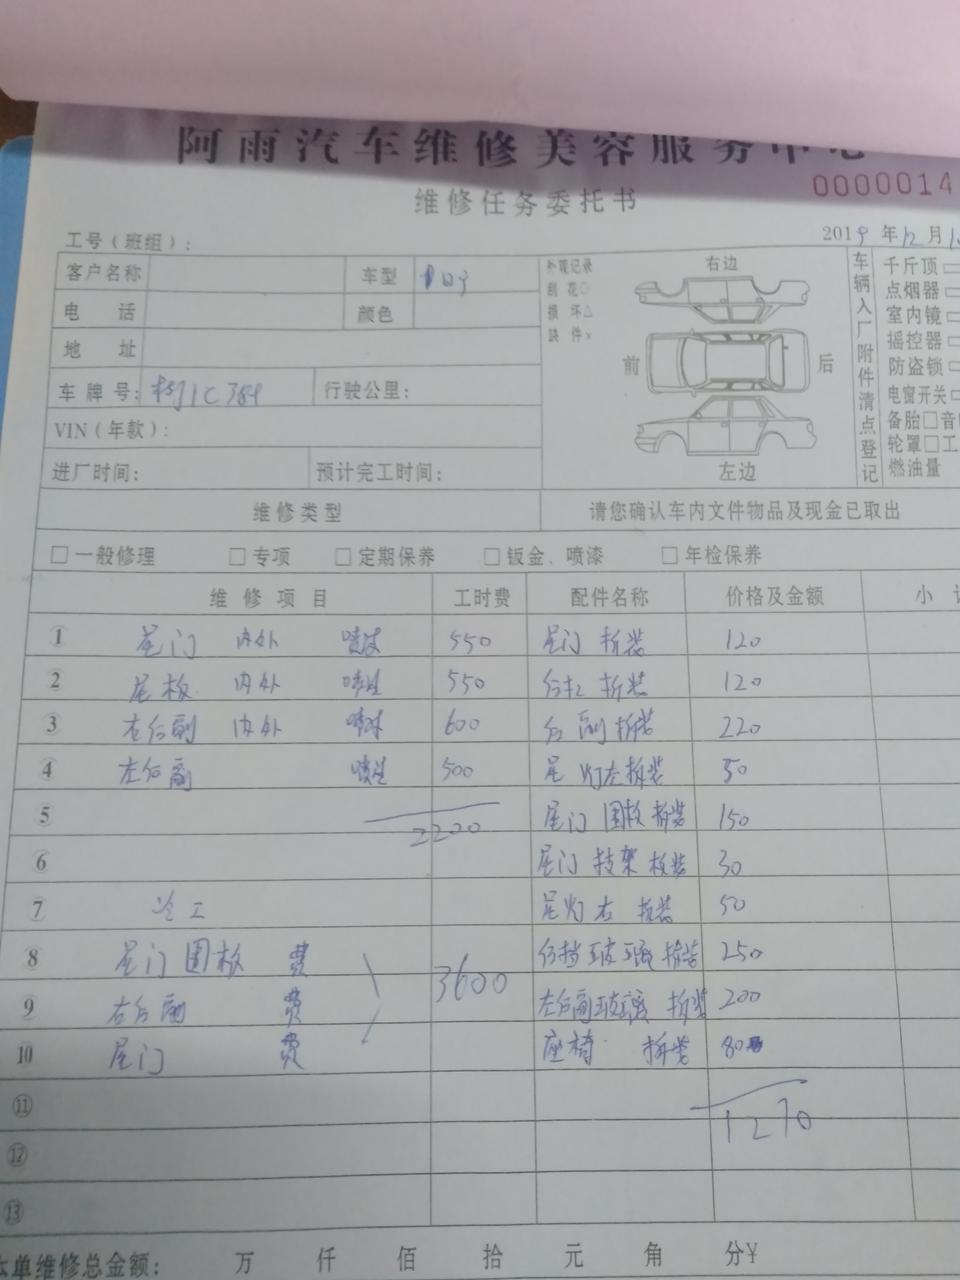 阿雨汽车维修美容服务中心
0000014
维修任务委托书
工号（班组）：
2019 年 12 月
客户名称 车型
电 话 颜色
地 址
车牌号： 行驶公里：
VIN（年款）：
进厂时间： 预计完工时间：
外观记录
刮 花○
损 坏△
缺 件×
右边
前
后
左边
车辆入厂附件清点登记
千斤顶
点烟器
室内镜
摇控器
防盗锁
电窗开关
备胎□音
轮罩□工
燃油量
维修类型 请您确认车内文件物品及现金已取出
□一般修理 □专项 □定期保养 □钣金、喷漆 □年检保养
维修项目 工时费 配件名称 价格及金额 小
① 尾门 内外 喷漆 550 尾门 拆装 120
② 尾板 内外 喷漆 550 后杠 拆装 120
③ 右后副 内外 喷漆 600 后 副 拆装 220
④ 左后副 喷漆 500 尾 灯左拆装 50
⑤ 2200 尾门 围板 拆装 150
⑥ 尾门 支架 拆装 30
⑦ 冷工 尾灯 右 拆装 50
⑧ 尾门 围板 费 3600 后挡玻璃 拆装 250
⑨ 右后副 费 左后副玻璃 拆装 200
⑩ 尾门 费 座椅 拆装 80
⑪ 1270
⑫
⑬
本单维修总金额： 万 仟 佰 拾 元 角 分¥